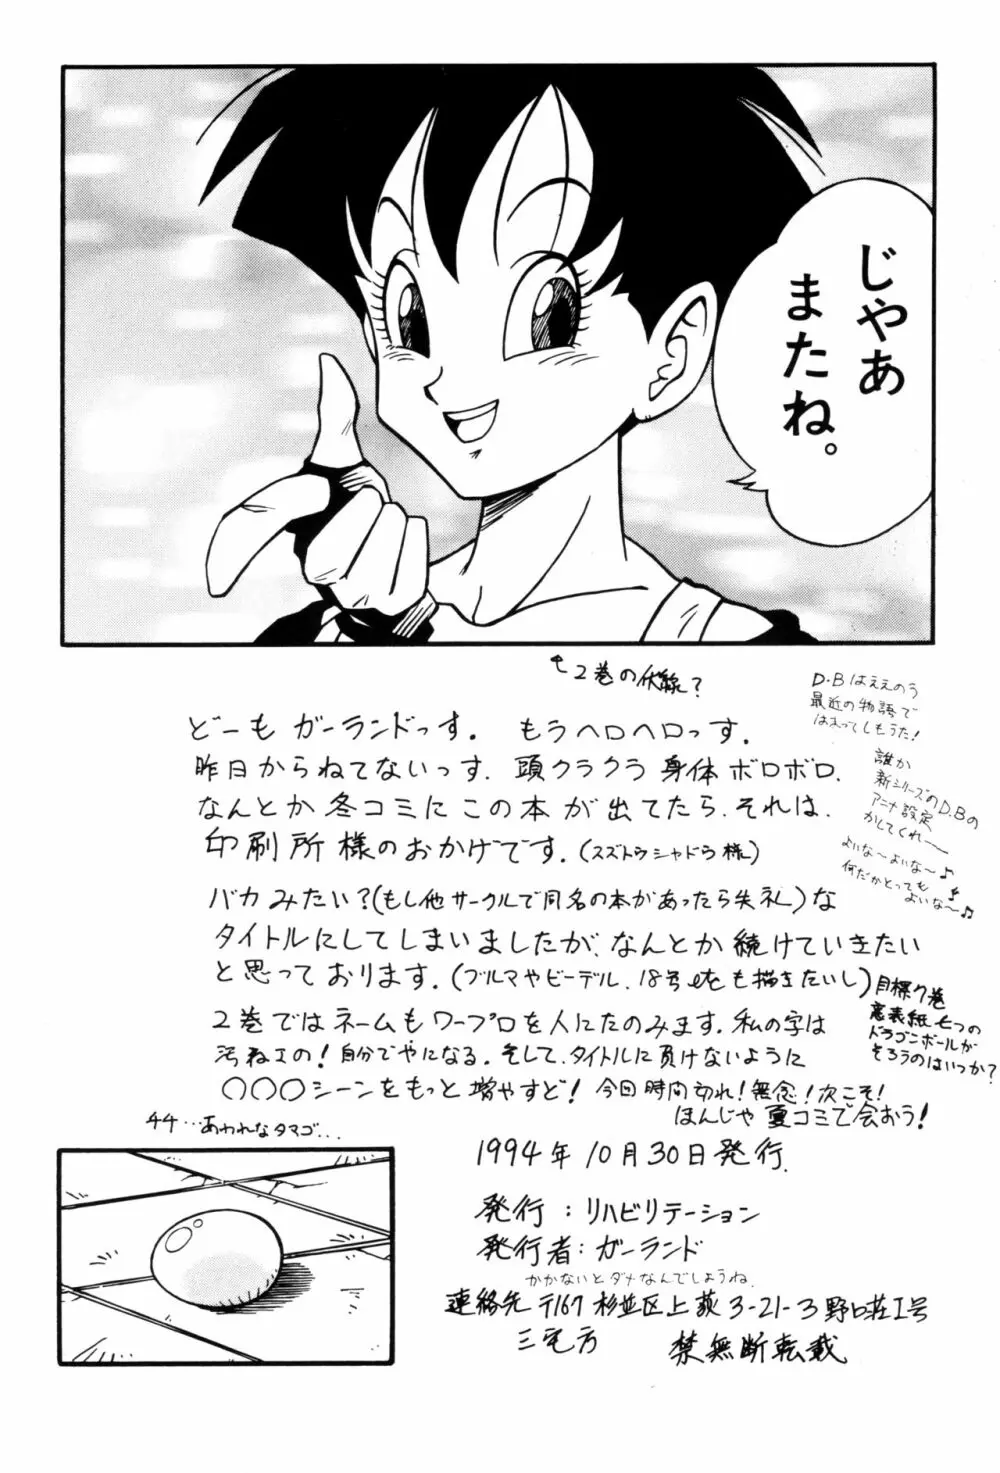 じゃあ
またね。
↑2巻の伏線?
D.Bはええのう
最近の物語で
はまってしもうた!
誰か
新シリーズのD.Bの
アニメ設定
かしてくれ〜
よいな〜よいな〜♪
何だかとっても
よいな〜♫
どーも ガーランドっす。 もうヘロヘロっす。
昨日からねてないっす. 頭クラクラ 身体ボロボロ.
なんとか 冬コミに この本が 出てたら、それは、
印刷所様のおかげです。(スズトウシャドウ様)
バカみたい?(もし他サークルで同名の本があったら失礼)な
タイトルにしてしまいましたが、なんとか 続けていきたい
と思っております。(ブルマやビーデル、18号etcも描きたいし)
目標7巻
裏表紙 七つの
ドラゴンボールが
そろうのはいつか?
2巻ではネームもワープロを人にたのみます。私の字は
汚ねェの!自分でやになる。そして、タイトルに負けないように
〇〇〇シーンをもっと増やすど! 今回時間切れ!無念!次こそ!
ほんじゃ 夏コミで会おう!
44…あわれなタマゴ...
1994年10月30日発行.
発行:リハビリテーション
発行者:ガーランド
かかないとダメなんでしょうね.
連絡先 〒167 杉並区上荻3-21-3 野口荘1号
三宅方
禁無断転載